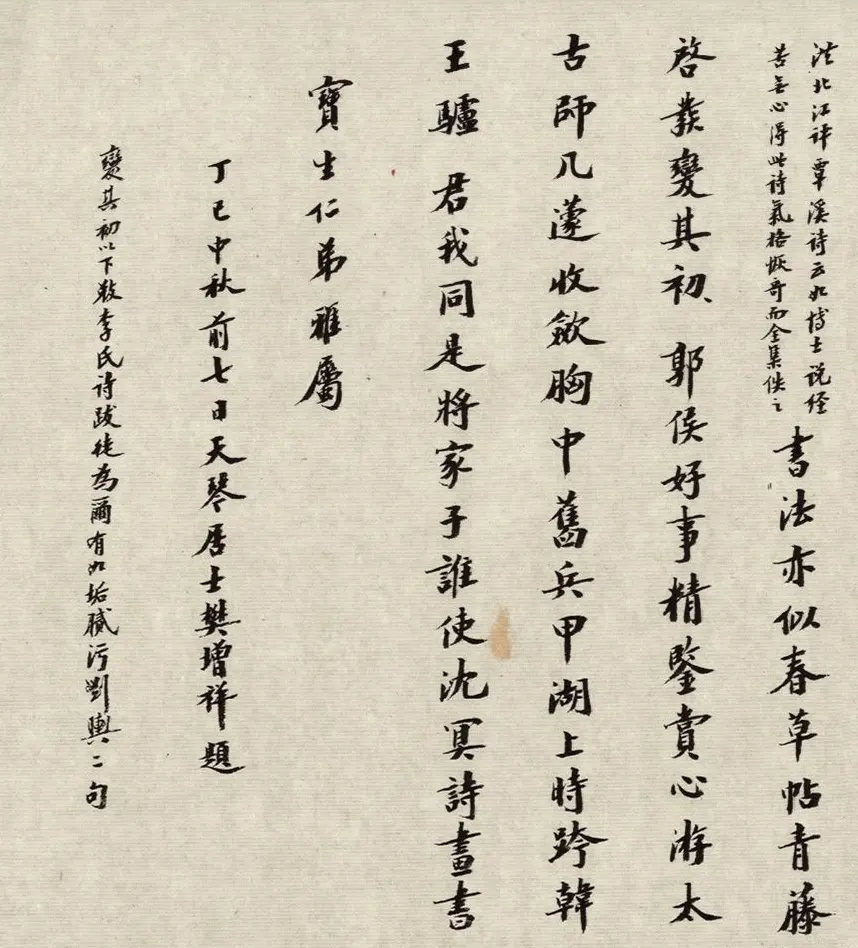 洪北江評覃溪詩云如博士説经
苦無心得此詩氣格恢奇而全集佚之
書法亦似春草帖青藤
啓發變其初郭侯好事精鑒賞心游太
古師几蘧收斂胸中舊兵甲湖上時跨韓
王驢君我同是將家子誰使沈冥詩畫書
寶生仁弟雅屬
丁巳中秋前七日天琴居士樊增祥題
變其初以下敚李氏詩跋徒為爾有如垢膩污劉輿二句